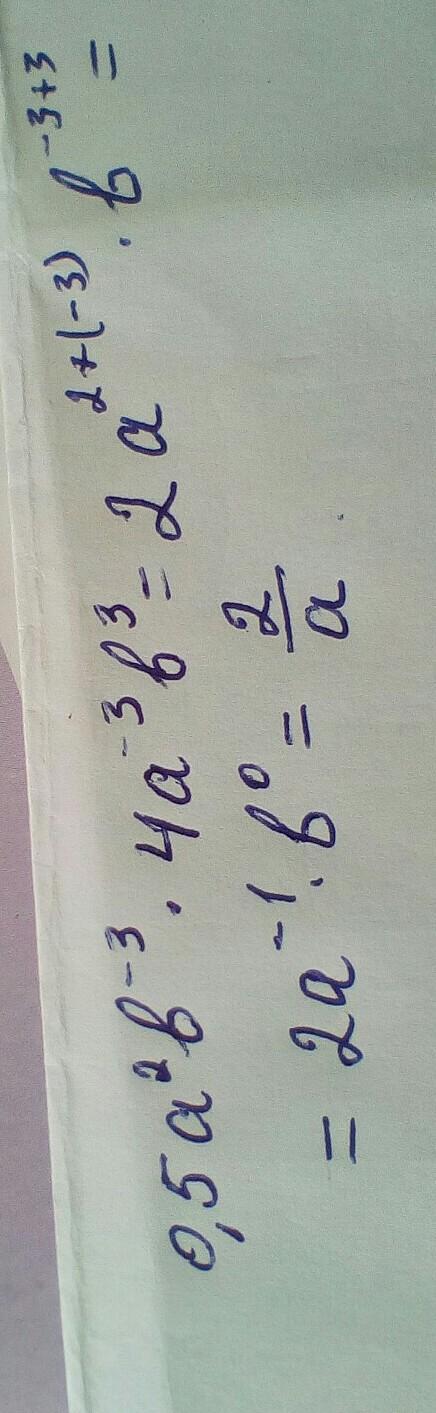 0,5a²b⁻³ · 4a⁻³b³ = 2a²⁺⁽⁻³⁾ · b⁻³⁺³ =
= 2a⁻¹ · b⁰ = 2/a